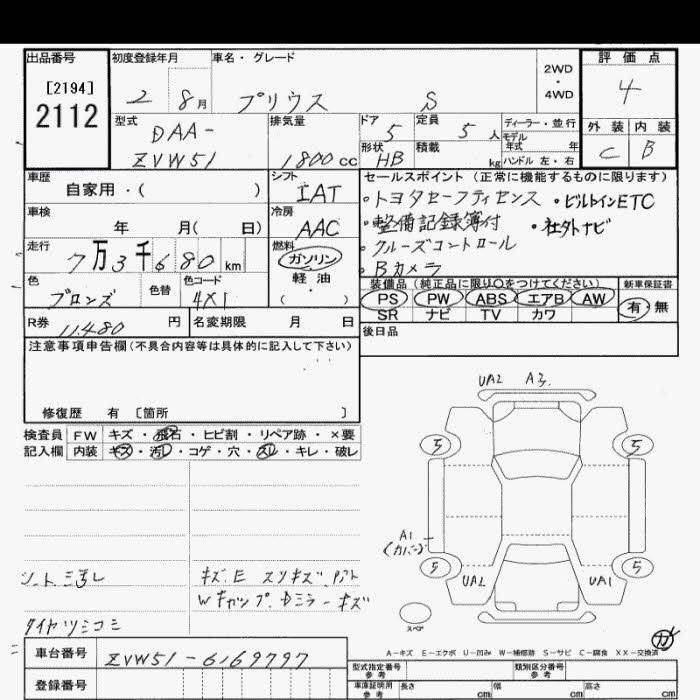 出品番号 初度登録年月 車名・グレード 2WD・4WD 評価点
[2194]
2112
2 8月 プリウス S 4
型式 排気量 ドア 定員 ディーラー・並行
DAA- 5 5人 モデル年式 年 外装 内装
ZVW51 1800cc 形状 HB 積載 kg ハンドル 左・右 C B
車歴 シフト セールスポイント (正常に機能するものに限ります)
自家用・( ) IAT ・トヨタセーフティセンス ・ビルトインETC
車検 冷房 ・整備記録簿付 ・社外ナビ
年 月( 日) AAC ・クルーズコントロール
走行 燃料 ・Bカメラ
7万3千680km ガソリン
軽油
・( )
色 色替 色コード 装備品 (純正品に限り○をつけてください) 新車保証書
ブロンズ 4X1 PS PW ABS エアB AW 有・無
SR ナビ TV カワ
R券 11,480円 名変期限 月 日 後日品
注意事項申告欄(不具合内容等は具体的に記入して下さい)
修復歴 有 [箇所 ]
検査員 FW キズ・飛石・ヒビ割・リペア跡・×要
記入欄 内装 キズ・汚レ・コゲ・穴・スレ・キレ・破レ
UA2 A3
5 5
A1
(カバー)
5 5
UA2 UA1
スペア
シート 汚レ キズ.E スリキズ
Wキャップ.Dミラーキズ
タイヤツミコミ
A-キズ E-エクボ U-凹み W-補修跡 S-サビ C-腐食 XX-交換済
車台番号 ZVW51-6169797
登録番号
型式指定番号 参考 類別区分番号 参考
車庫証明用 参考 長さ cm 幅 cm 高さ cm